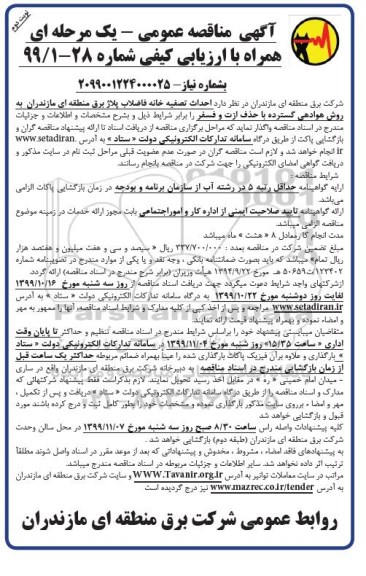 نوبت دوم
آگهی مناقصه عمومی – یک مرحله ای
همراه با ارزیابی کیفی شماره ۲۸-۹۹/۱
بشماره نیاز- ۲۰۹۹۰۰۱۲۲۴۰۰۰۰۲۵
شرکت برق منطقه ای مازندران در نظر دارد احداث تصفیه خانه فاضلاب پلاژ برق منطقه ای مازندران به
روش هوادهی گسترده با حذف ازت و فسفر را برابر شرایط ذیل و بشرح مشخصات و اطلاعات و جزئیات
مندرج در اسناد مناقصه واگذار نماید که مراحل برگزاری مناقصه از دریافت اسناد تا ارائه پیشنهاد مناقصه گران و
بازگشایی پاکت از طریق درگاه سامانه تدارکات الکترونیکی دولت « ستاد » به آدرس www.setadiran.
ir انجام خواهد شد و لازم است مناقصه گران در صورت عدم عضویت قبلی مراحل ثبت نام در سایت مذکور و
دریافت گواهی امضای الکترونیکی را جهت شرکت در مناقصه بانجام رسانند.
شرایط مناقصه :
ارایه گواهینامه حداقل رتبه ۵ در رشته آب از سازمان برنامه و بودجه در زمان بازگشایی پاکات الزامی
می‌باشد.
ارائه گواهینامه تایید صلاحیت ایمنی از اداره کار و امور اجتماعی بابت مجوز ارائه خدمات در زمینه موضوع
مناقصه الزامی میباشد.
مدت انجام کار معادل ۸ « هشت » ماه میباشد
مبلغ تضمین شرکت در مناقصه بعدد : ۳۳۷/۷۰۰/۰۰۰ ریال « سیصد و سی و هفت میلیون و هفتصد هزار
ریال تمام» میباشد که باید بصورت ضمانتنامه بانکی ، وجه نقد و یا یکی از موارد مندرج در تصویبنامه شماره
۱۲۳۴۰۲/ت۵۰۶۵۹ هـ مورخ ۱۳۹۴/۹/۲۲ هیأت وزیران (برابر شرح مندرج در اسناد مناقصه) ارائه گردد
ازشرکتهای واجد شرایط دعوت میگردد جهت دریافت اسناد مناقصه از روز سه شنبه مورخ ۱۳۹۹/۱۰/۱۶
لغایت روز دوشنبه مورخ ۱۳۹۹/۱۰/۲۲ به درگاه سامانه تدارکات الکترونیکی دولت « ستاد » به آدرس
www.setadiran.ir مراجعه و پس از اخذ کپی از کلیه مدارک و شرایط اسناد مناقصه آنها را ممهور به مهر
و امضاء نموده و بهمراه پیشنهاد قیمت ارائه نمایند.
متقاضیان میبایستی پیشنهاد خود را براساس شرایط مندرج در اسناد مناقصه تنظیم و حداکثر تا پایان وقت
اداری « ساعت ۱۵/۳۵» روز شنبه مورخ ۱۳۹۹/۱۱/۰۴ در سامانه تدارکات الکترونیکی دولت « ستاد
» بارگذاری و علاوه برآن فیزیک پاکات بارگذاری شده را عیناً بهمراه ضمائم مربوطه حداکثر یک ساعت قبل
از زمان بازگشایی مندرج در اسناد مناقصه به دبیرخانه شرکت برق منطقه ای مازندران واقع در ساری
- میدان امام خمینی « ره » در مقابل اخذ رسید تحویل نمایند. لازم بذکراست فقط پیشنهاد شرکتهائی که
مدارک و اسناد مناقصه را از طریق درگاه سامانه تدارکات الکترونیکی دولت « ستاد » دریافت و پس از تکمیل ،
مهر و امضا ، برروی سایت مذکور بارگذاری نموده و مشخصات خود را بطور کامل ثبت و درج کرده باشند مورد
قبول و بازگشایی خواهد شد.
کلیه پیشنهادات واصله راس ساعت ۸/۳۰ صبح روز سه شنبه مورخ ۱۳۹۹/۱۱/۰۷ در محل سالن وحدت
شرکت برق منطقه ای مازندران (طبقه دوم) بازگشایی خواهد شد .
به پیشنهادهای فاقد امضاء ، مشروط ، مخدوش و پیشنهاداتی که بعد از موعد مقرر در اسناد واصل شوند مطلقاً
ترتیب اثر داده نخواهد شد. سایر اطلاعات و جزئیات مربوطه در اسناد مناقصه مندرج میباشد.
مراتب در سایت معاملات توانیر به آدرس WWW.Tavanir.org.ir و سایت شرکت برق منطقه ای
به آدرس www.mazrec.co.ir/tender نیز درج گردیده است
روابط عمومی شرکت برق منطقه ای مازندران